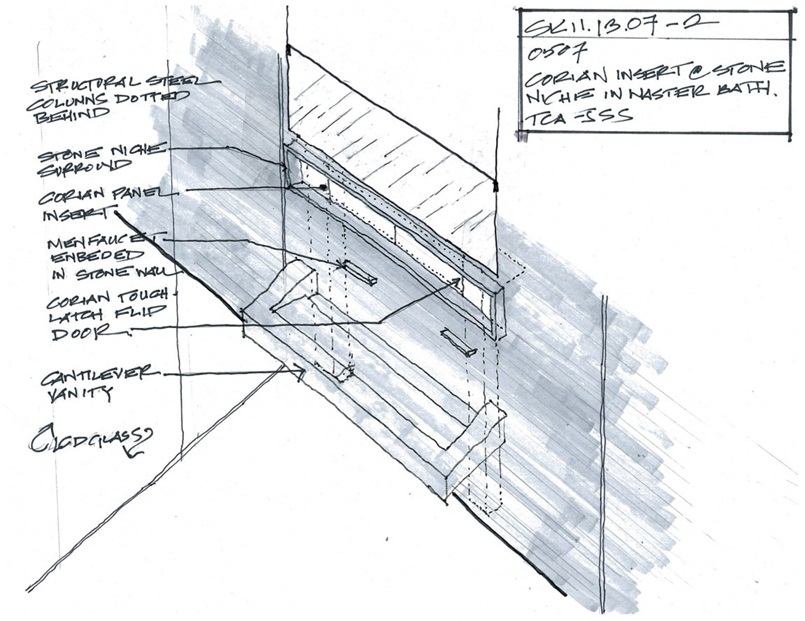 SK11.13.07-2
0507
CORIAN INSERT @ STONE
NICHE IN MASTER BATH.
TCA-JSS
STRUCTURAL STEEL
COLUMNS DOTTED
BEHIND
STONE NICHE
SURROUND
CORIAN PANEL
INSERT
MEN FAUCET
ENBEDED
IN STONE WALL
CORIAN TOUCH-
LATCH FLIP
DOOR
CANTILEVER
VANITY
GLASS